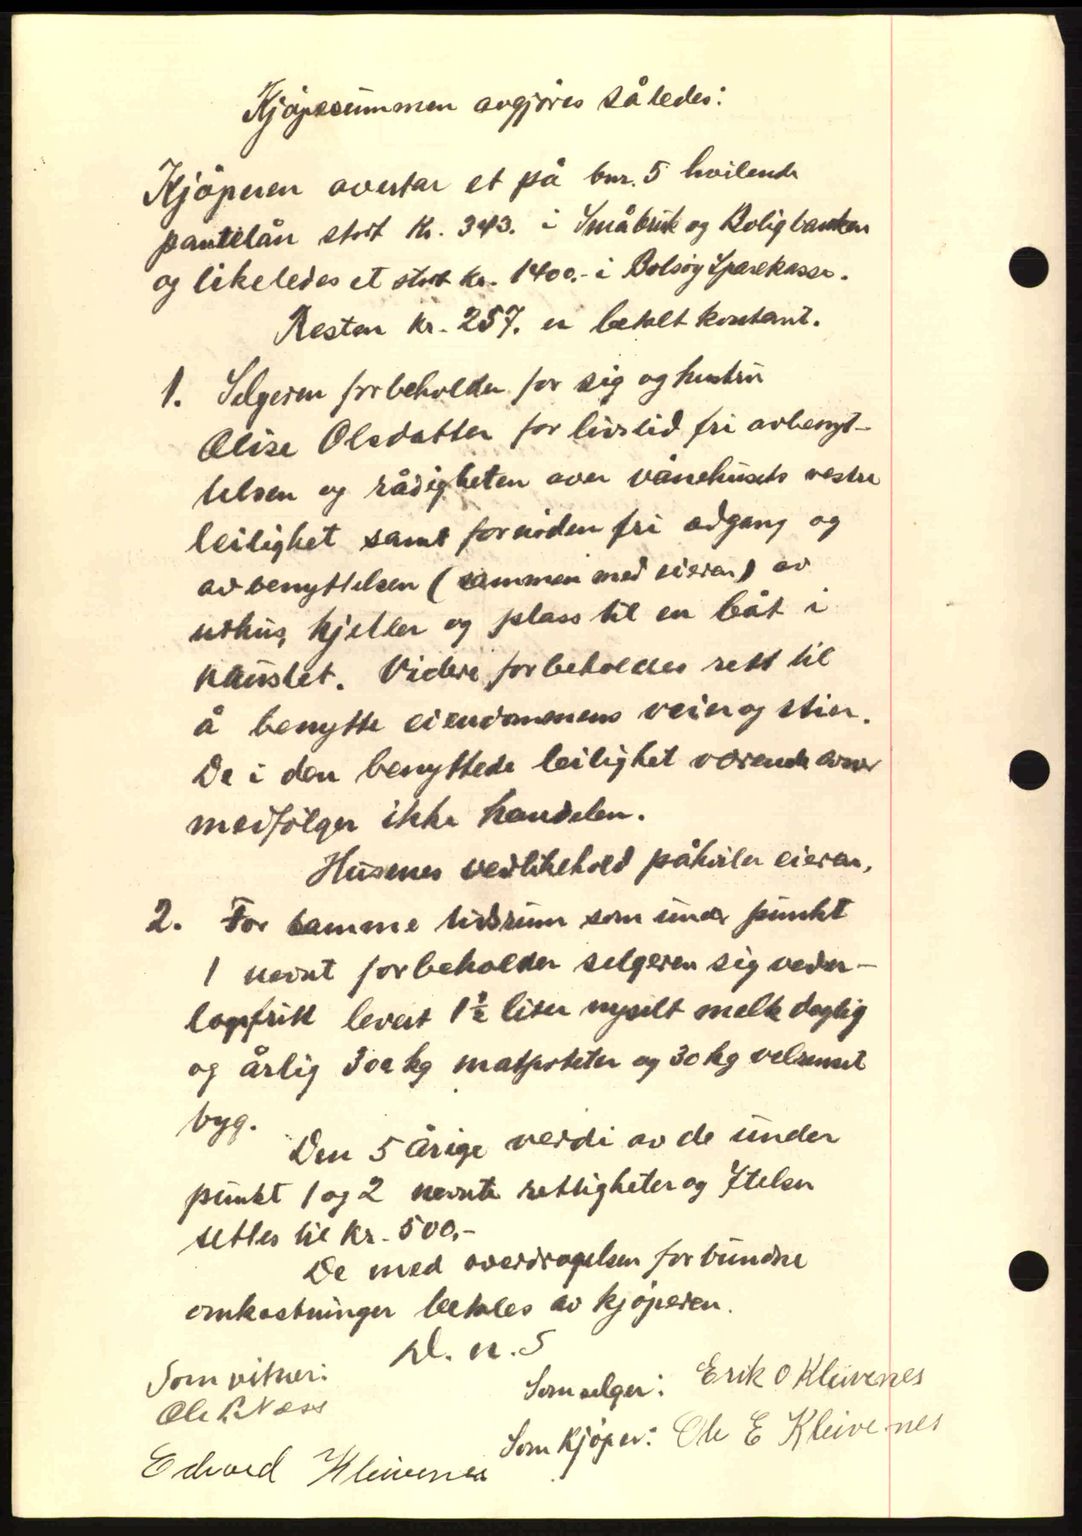 Kjøpesummen avgjøres således:
Kjøperen overtar et på bnr. 5 hvilende
pantelån stort kr. 343. i Småbruk og Boligbanken
og likeledes et stort kr. 1400.- i Bolsøy Sparekasse.
Resten kr. 257. er betalt kontant.
1. Selgeren forbeholder for sig og hustru
Olise Olsdatter for livstid fri avbenyt-
telsen og rådigheten over vånehusets vestre
leilighet samt fornøden fri adgang og
avbenyttelsen (sammen med eieren) av
uthus, kjeller og plass til en båt i
naustet. Videre forbeholdes rett til
å benytte eiendommens veier og stier.
De i den benyttede leilighet værende ovner
medfølger ikke handelen.
Husenes vedlikehold påhviler eieren.
2. For samme tidsrum som under punkt
1 nevnt forbeholder selgeren sig veder-
lagsfritt levert 1 1/2 liter nysilt melk daglig
og årlig 300 kg matpoteter og 30 kg velrenset
byg.
Den 5 årige verdi av de under
punkt 1 og 2 nevnte rettigheter og Ytelser
settes til kr. 500.-
De med overdragelsen forbundne
omkostninger betales av kjøperen.
D. u. S
Som vitner:
Som selger: Erik O Kleivenes
Ole L Næss
Som Kjøper: Ole E Kleivenes
Edvard Kleivenes